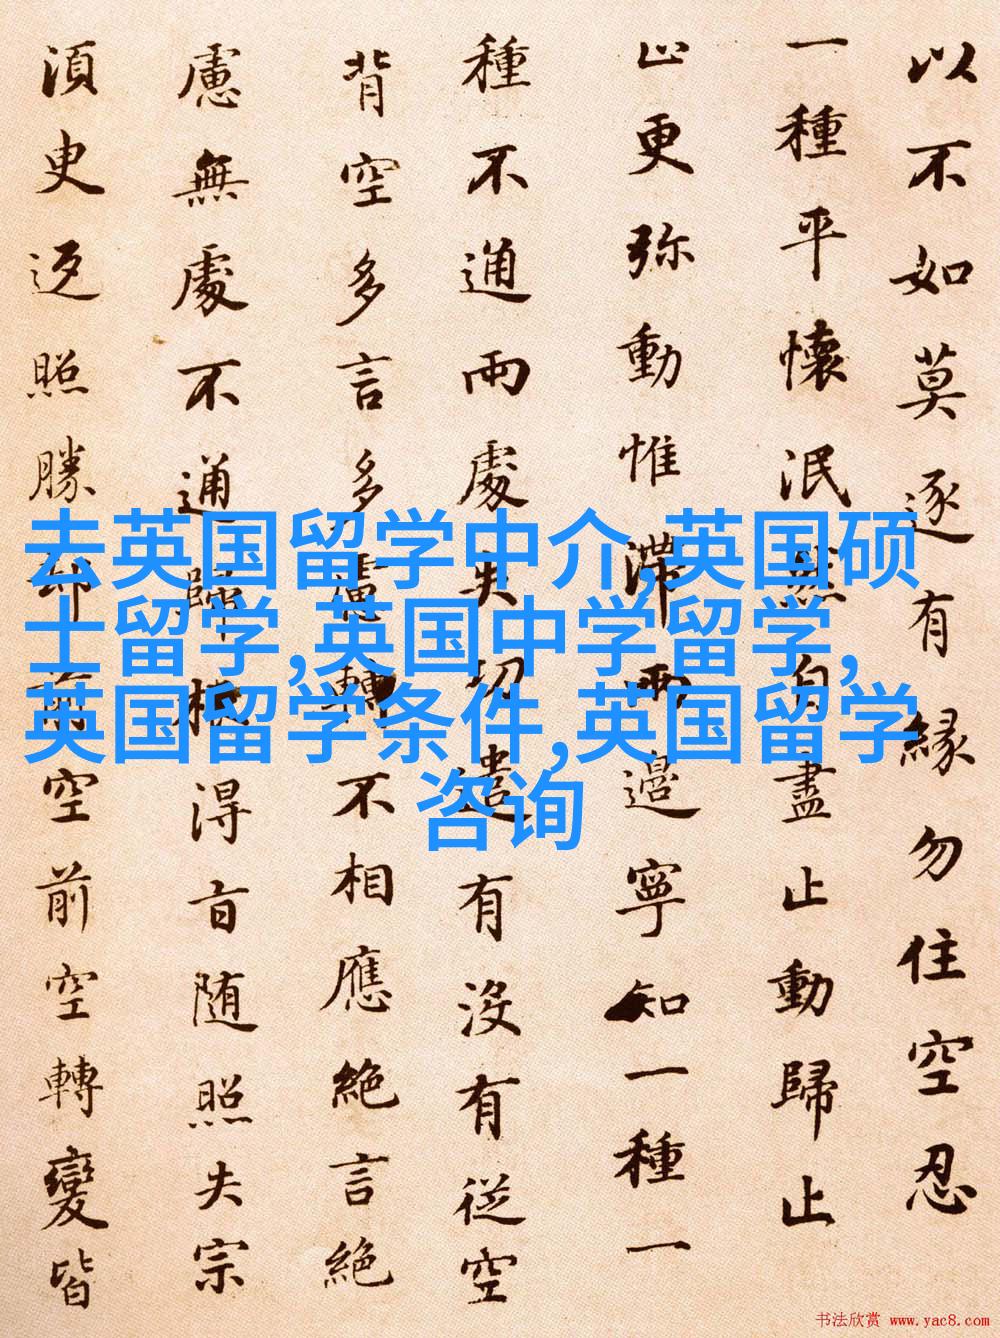 以不如莫逐有緣勿住空忍
一種平懷泯然自盡止動歸止
止更弥動惟滞兩邊寧知一種一
種不通兩處失功遣有沒有從空
背空多言多慮轉不相應絶言絶
慮無處不通歸根得旨随照失宗
湏臾返照勝却前空前空轉變皆
去英国留学中介,英国硕
士留学,英国中学留学,
英国留学条件,英国留学
咨询
书法欣赏 www.yac8.com